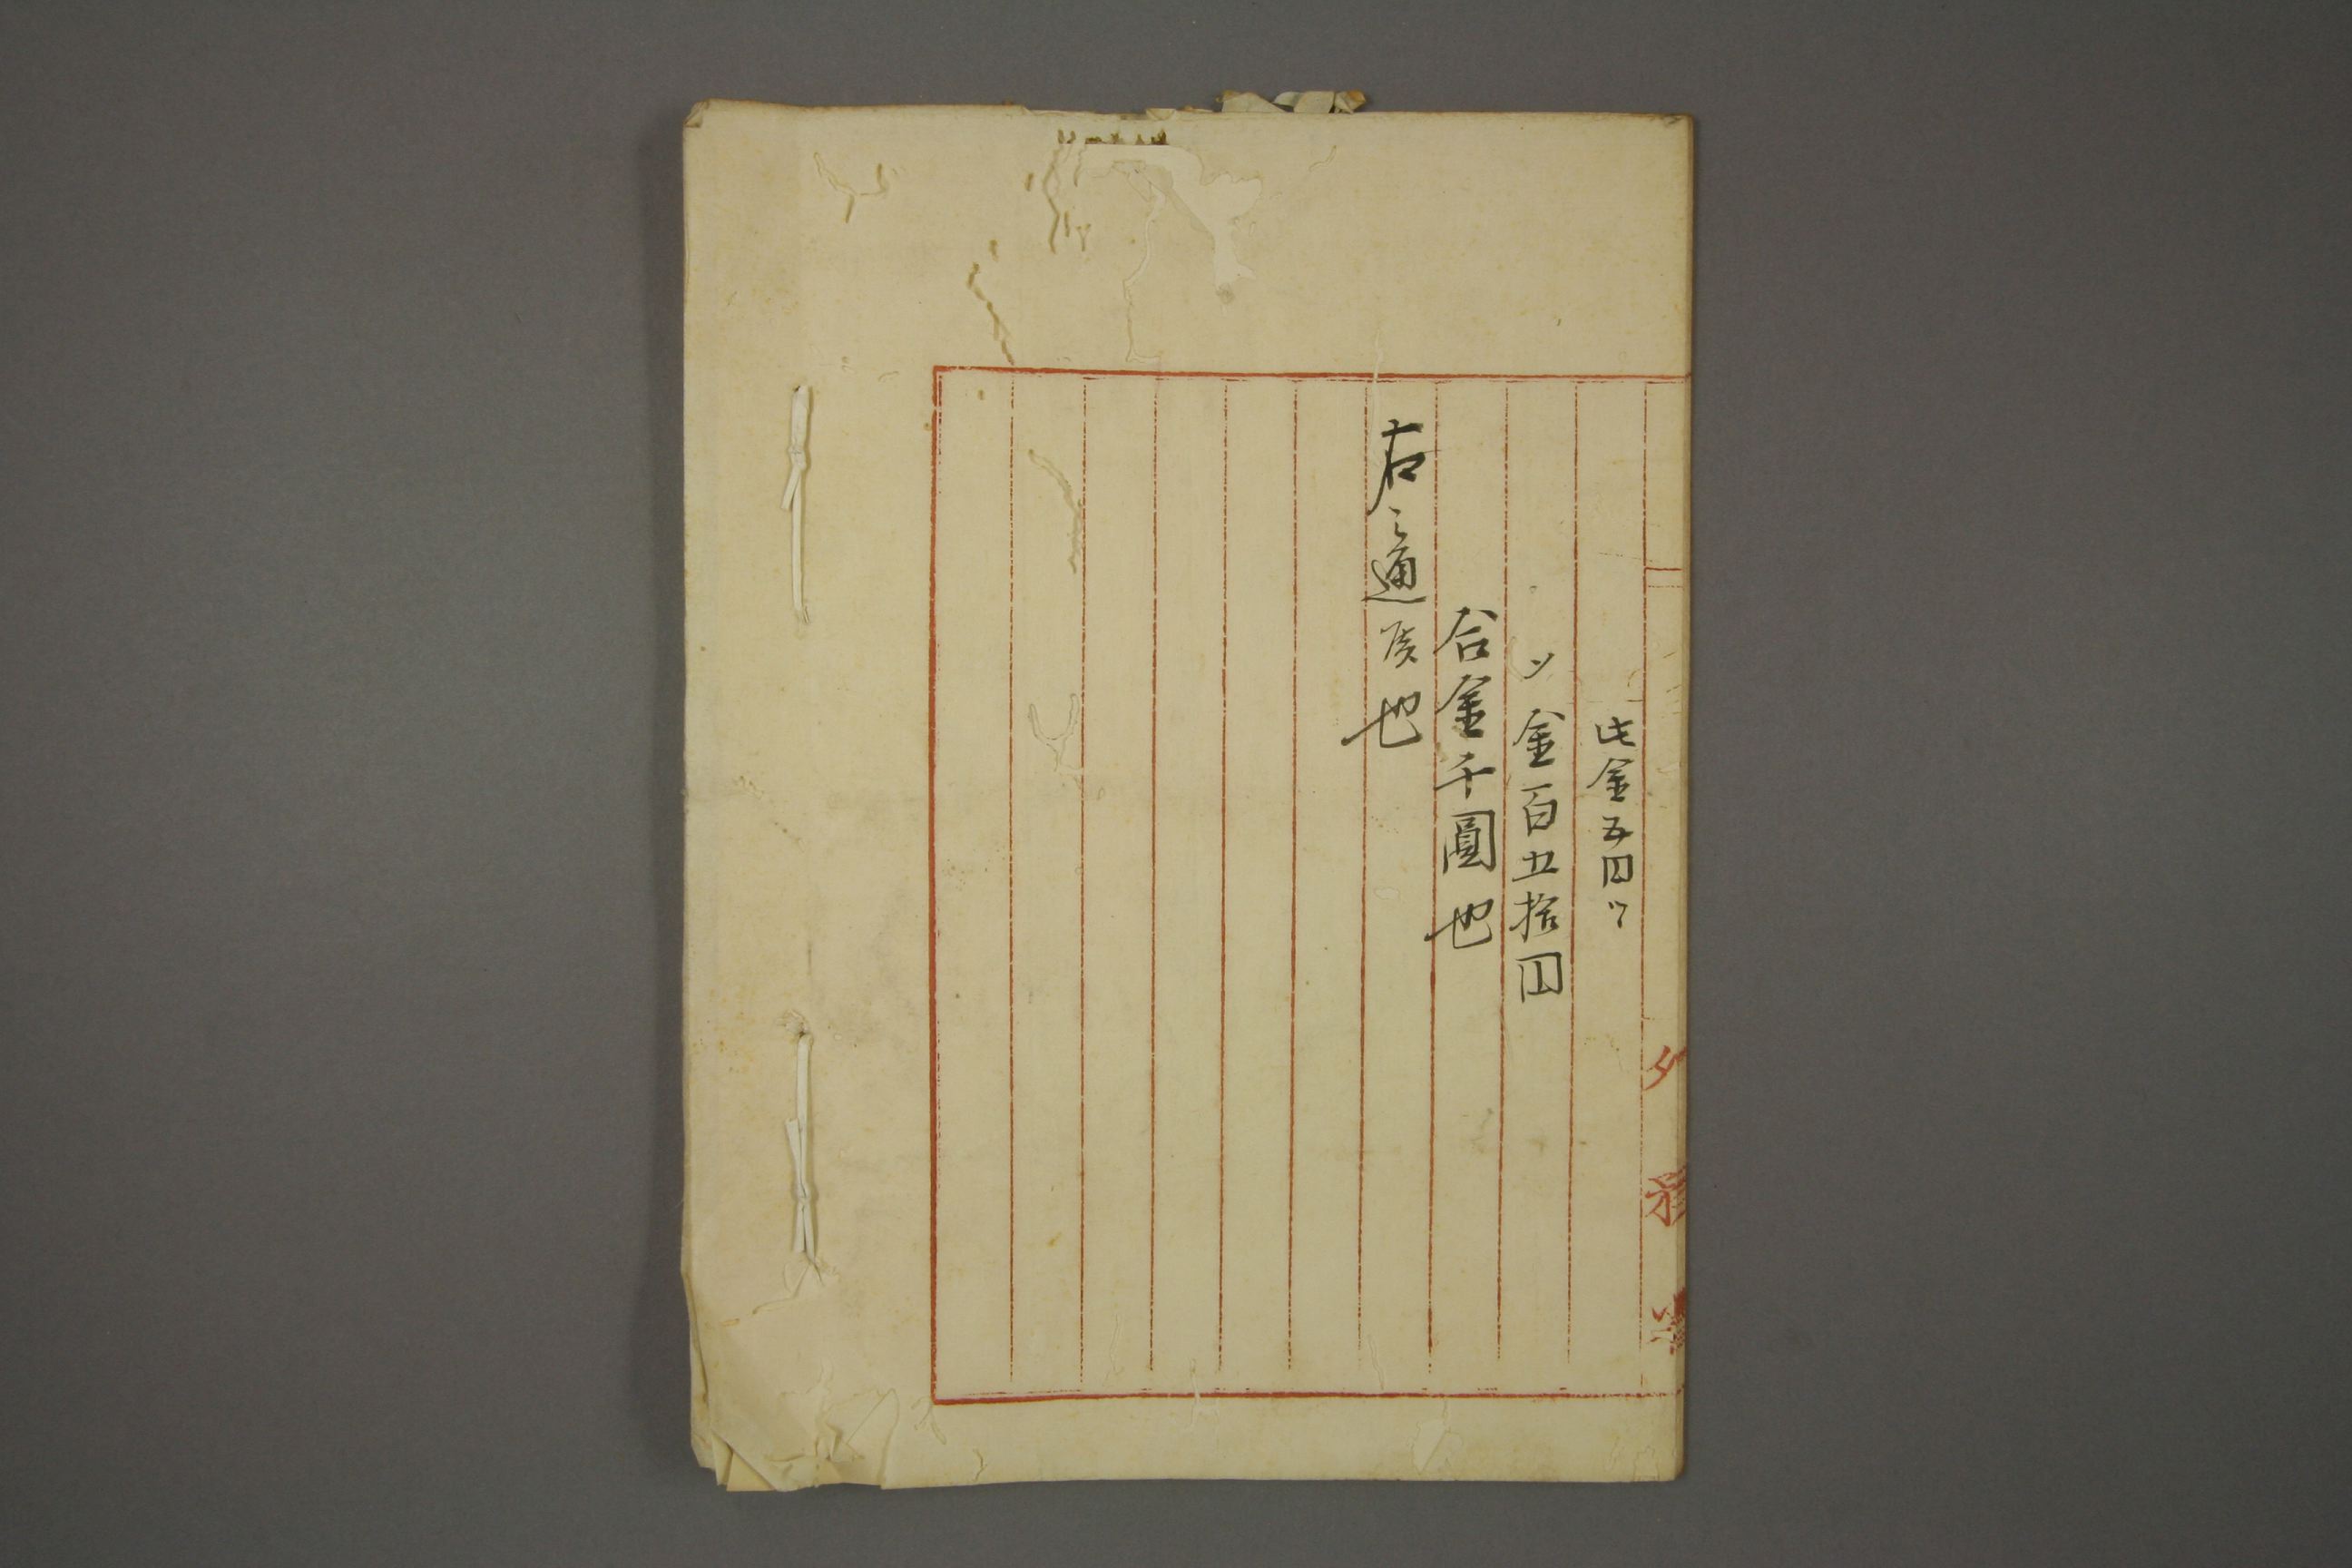 此金五円ツヽ
〆金百五拾円
合金千圓也
右之通候也